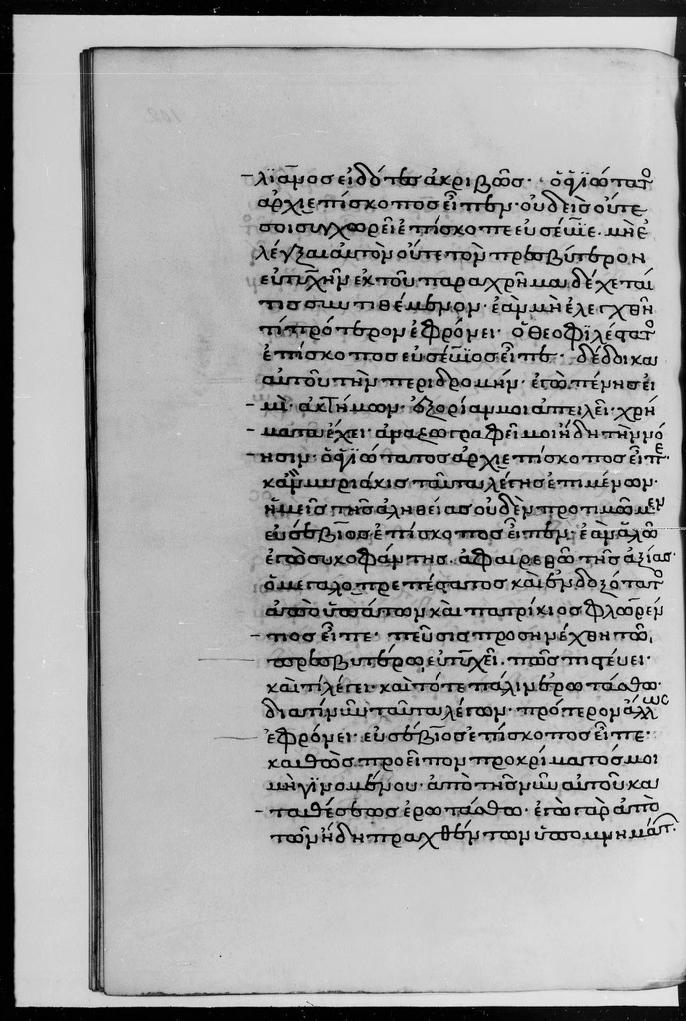 λϊανος εἰδότος ἀκριβῶς· ὁ ὁσϊώτατο
ἀρχιεπίσκοπος εἶπεν· οὐδεὶς οὔτε
σοι συγχωρεῖ ἐπίσκοπε εὐσέβϊε. μὴ ἐ
λέγξαι αὐτὸν οὔτε τὸν πρεσβύτερον
εὐτυχῆν ἐκ τοῦ παραχρῆμα δέχεταί
τις συντιθέμενον· ἐὰν μὴ ἐλεγχθῆ
τί πρότερον ἐφρόνει· ὁ θεοφϊλέστατο
ἐπίσκοπος εὐσέβϊος εἶπε· δέδοικα
αὐτοῦ τὴν περιδρομήν· ἐγὼ πένης εἰ
μὶ· ἀκτήμων· ἐξορίαν μοι ἀπειλεῖ· χρή
ματα ἔχει· ἀναζωγραφεῖ μοι ἤδη τὴν νό
ησιν· ὁ ὁσϊώτατος ἀρχιεπίσκοπος εἶπε·
κἂν μυριάκις ταῦτα λέγης ἐπιμένων·
ἡμεῖς τῆς ἀληθείας οὐδὲν προτιμῶμεν
εὐσέβϊος ἐπίσκοπος εἶπεν· ἐὰν ἁλῶ
ἐγὼ συκοφάντης. ἀφαιρεθῶ τῆς ἀξίας·
ὁ μεγαλοπρεπέστατος καὶ ἐνδοξότατο
ἀπὸ ὑπάτων καὶ πατρίκιος φλωρέν
τιος εἶπε· πεῦσις προσηνέχθη τῶ
πρεσβυτέρω εὐτυχεῖ. πῶς πιστεύει·
καὶ τί λέγει· καὶ τότε πάλιν ἐρωτάσθω·
διατί νῦν ταῦτα λέγων· πρότερον ἄλλως
ἐφρόνει· εὐσέβϊος ἐπίσκοπος εἶπε·
καθὼς προεῖπον προκρίματός μοι
μὴ γϊνομένου· ἀπὸ τῆς νῦν αὐτοῦ κα
ταθέσεως ἐρωτάσθω· ἐγὼ γὰρ ἀπὸ
τῶν ἤδη πραχθέντων ὑπομνημάτ